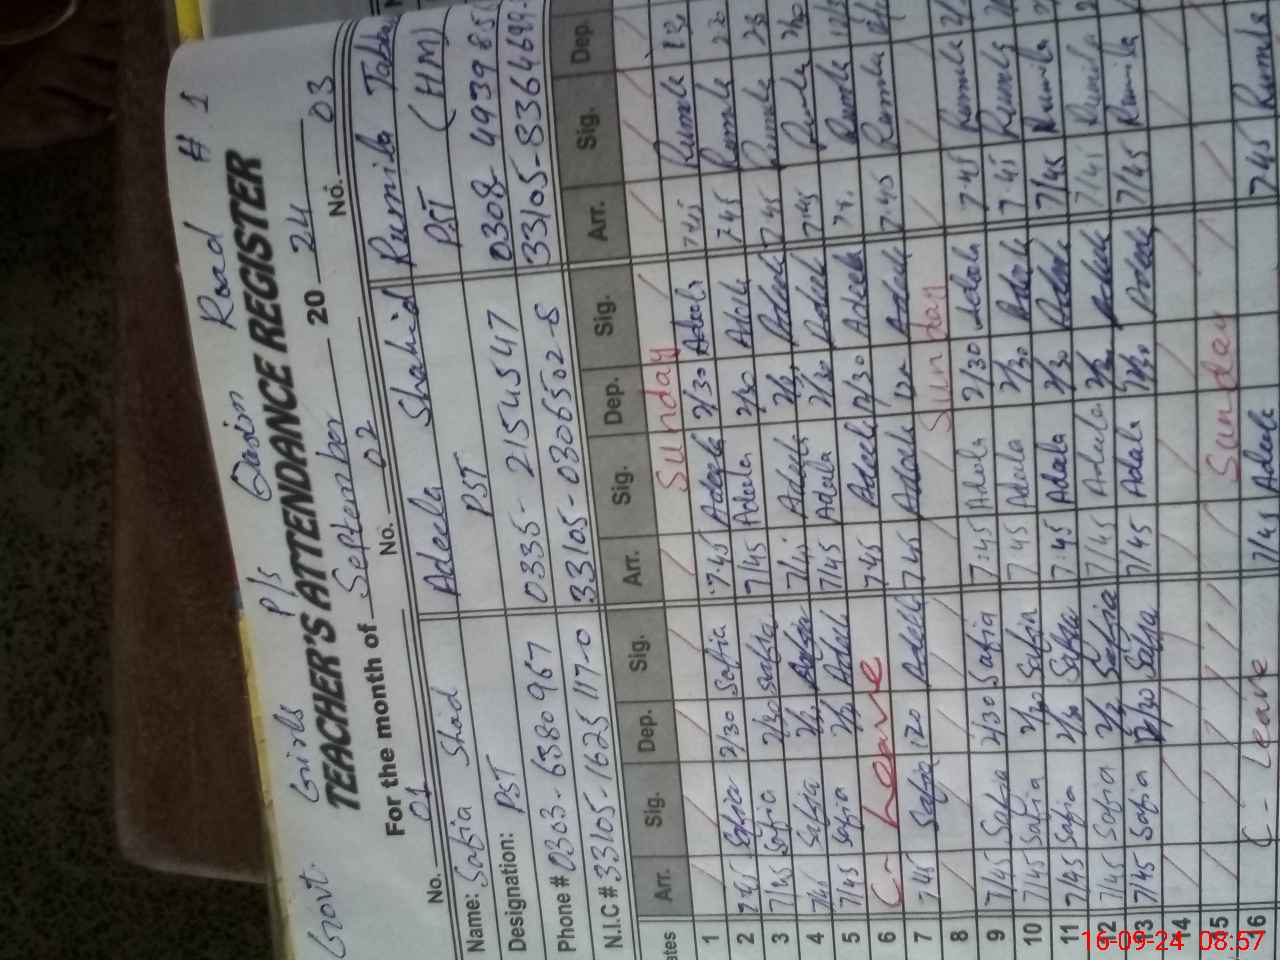 Govt. Girls P/S Qasim Road # 1
TEACHER'S ATTENDANCE REGISTER
For the month of September 20 24
No. 01 No. 02 No. 03
Name: Safia Shad Adeela Shahid Rumila
Designation: PST PST PST (HM)
Phone # 0303-6580967 0335-2154547 0308-49398
N.I.C # 33105-1625117-0 33105-0306502-8 33105-8364699-
Arr. Sig. Dep. Sig. Arr. Sig. Dep. Sig. Arr. Sig. Dep.
1 Sunday
2 7:45 Safia 2/30 Safia 7:45 Adeela 2/30 Adeela 7:45 Rumila
3 7/45 Safia 2/30 Safia 7/45 Adeela 2/30 Adeela 7:45 Rumila
4 7/45 Safia Safia Adeela Adeela 7:45 Rumila
5 7/45 Safia 2/30 7/45 Adeela 2/30 Adeela 7:45 Rumila
6 C- Leave 7:45 Adeela 2/30 Adeela Rumila
7 7:45 Safia 7:45 Adeela Adeela 7:45 Rumila
8 Sunday
9 7/45 Safia 2/30 Safia 7:45 Adeela 2/30 Adeela 7:45 Rumila
10 7/45 Safia 2/30 Safia 7:45 Adeela 2/30 Adeela 7:45 Rumila
11 7/45 Safia 2/30 Safia 7:45 Adeela 2/30 Adeela 7/45 Rumila
12 7/45 Safia Safia 7/45 Adeela Adeela 7/45 Rumila
13 7/45 Safia 2/30 Safia 7/45 Adeela 2/30 Adeela 7/45 Rumila
14
15 Sunday
16 C- Leave 7/45 Adeela 7:45 Rumila
16-09-24 08:57